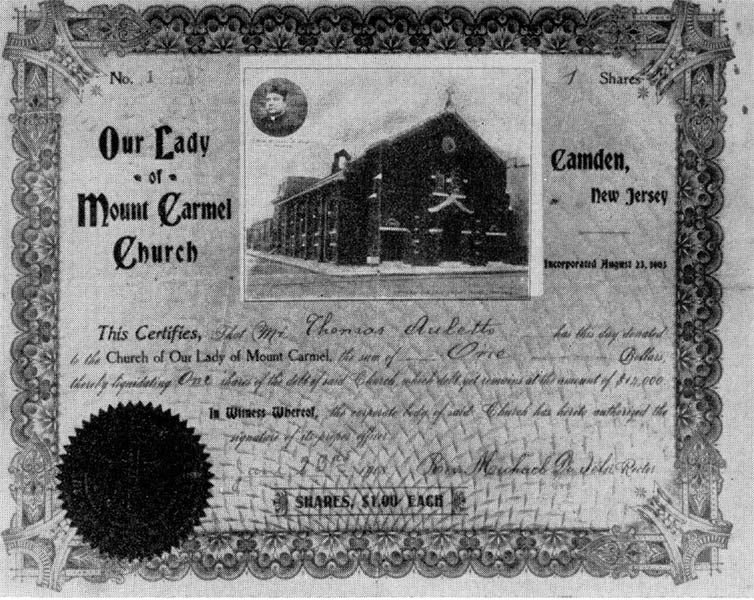 No. 1
1 Shares
Our Lady
of
Mount Carmel
Church
Camden,
New Jersey
Incorporated August 23, 1903
This Certifies, That Mr Thomas Auletto has this day donated
to the Church of Our Lady of Mount Carmel, the sum of One Dollars,
thereby liquidating One shares of the debt of said Church which debt yet remains at the amount of $12,000
In Witness Whereof, the corporate body of said Church has hereto authorized the
signature of its proper officer
23rd 190
Rev. Michael Di Ielsi Rector
SHARES, $1.00 EACH